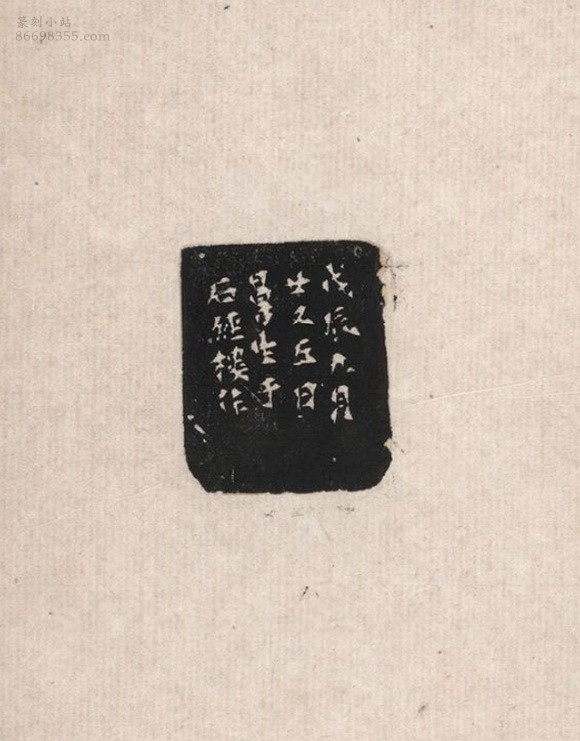 篆刻小站
86698355.com
戊辰九月
廿又五日
曼生于
石經樓作